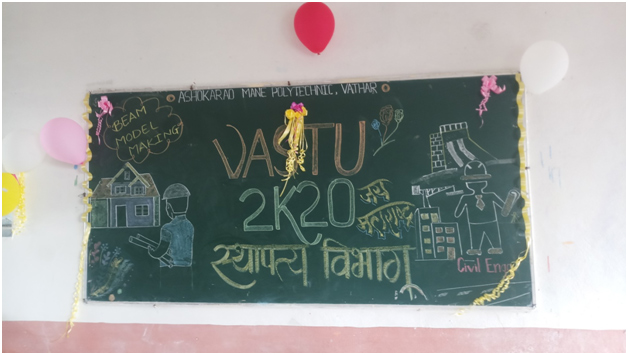 ASHOKARAO MANE POLYTECHNIC, VATHAR
BEAM
MODEL
MAKING
VASTU
2K20
जय
महाराष्ट्र
स्थापत्य विभाग
Civil